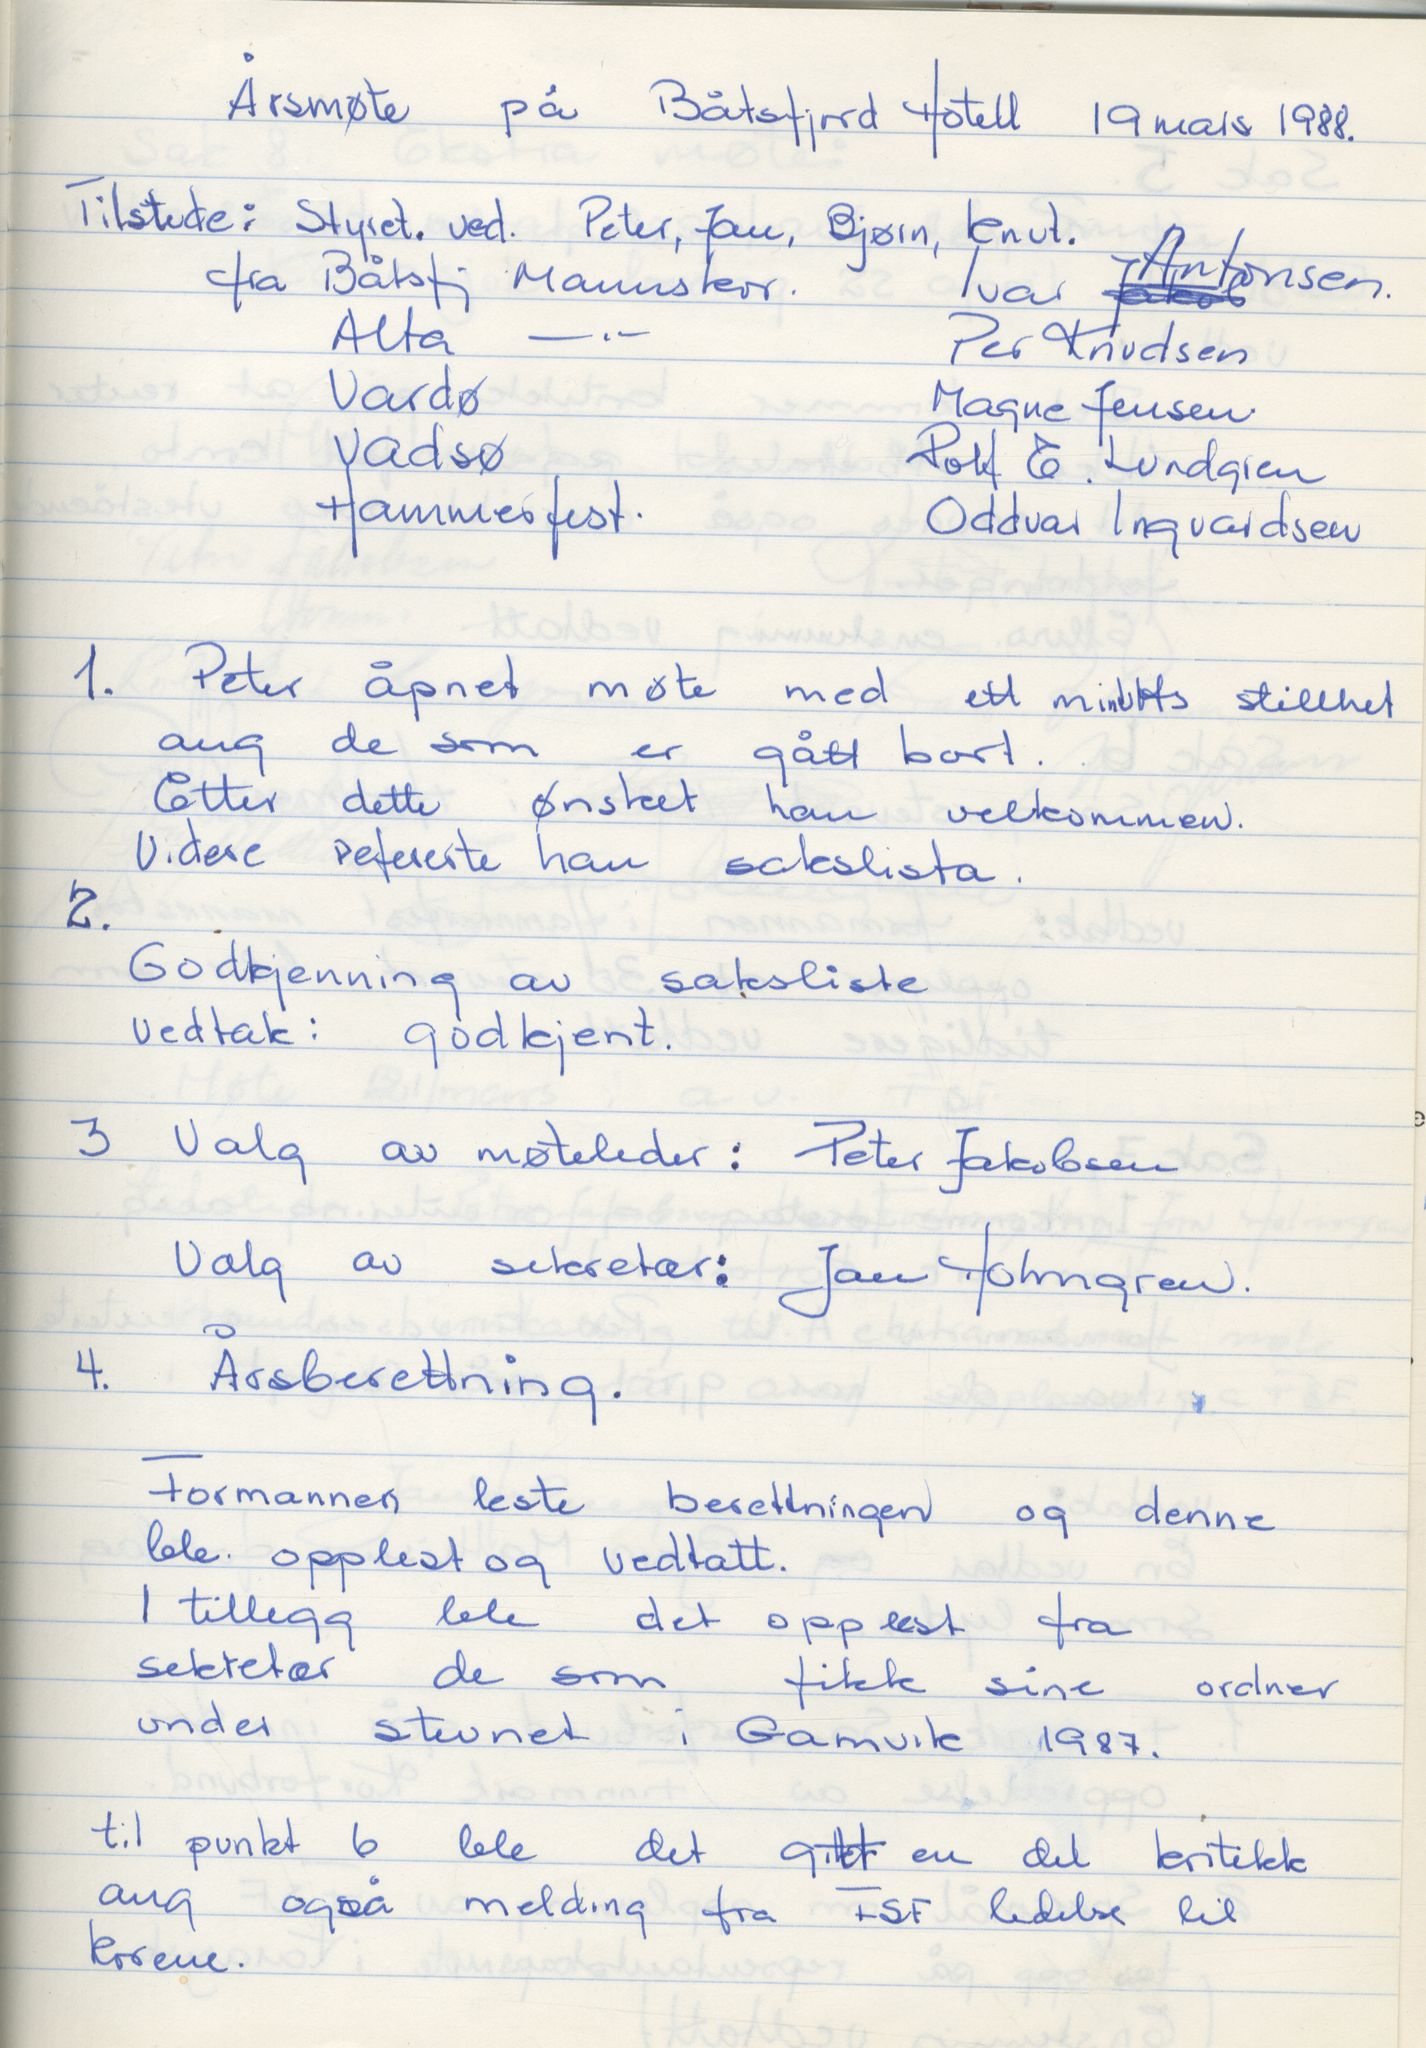 Årsmøte på Båtsfjord Hotell 19 mars 1988.
Tilstede: Styret. ved. Peter, Jan, Bjørn, Knut.
fra Båtsfj Mannskor. Ivar Antonsen.
Alta —.— Per Knudsen
Vardø Magne Jensen.
Vadsø Rolf E. Lundgren
Hammerfest. Oddvar Ingvardsen
1. Peter åpnet møte med ett minutts stillhet
ang de som er gått bort.
Etter dette ønsket han velkommen.
Videre refererte han sakslista.
2.
Godkjenning av saksliste
vedtak: godkjent.
3 Valg av møteleder: Peter Jakobsen
Valg av sekretær: Jan Holmgren.
4. Årsberettning.
Formannen leste berettningen og denne
ble. opplest og vedtatt.
I tillegg ble det opplest fra
sekretær de som fikk sine ordner
under stevnet i Gamvik 1987.
til punkt 6 ble det gitt en del kritikk
ang også melding fra FSF ledelse til
korene.